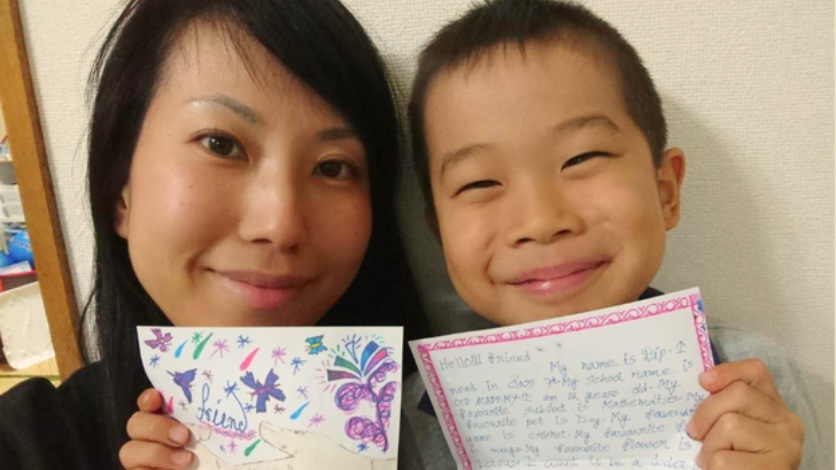 friend
Hello!!! friend
My name is Dip. I
read in class My School name is
I am years old. My
favourite subject is Mathematics. My
favourite pet is Dog. My favourite
game is cricket. My favourite
is mango. My favourite flower is
I want to be a